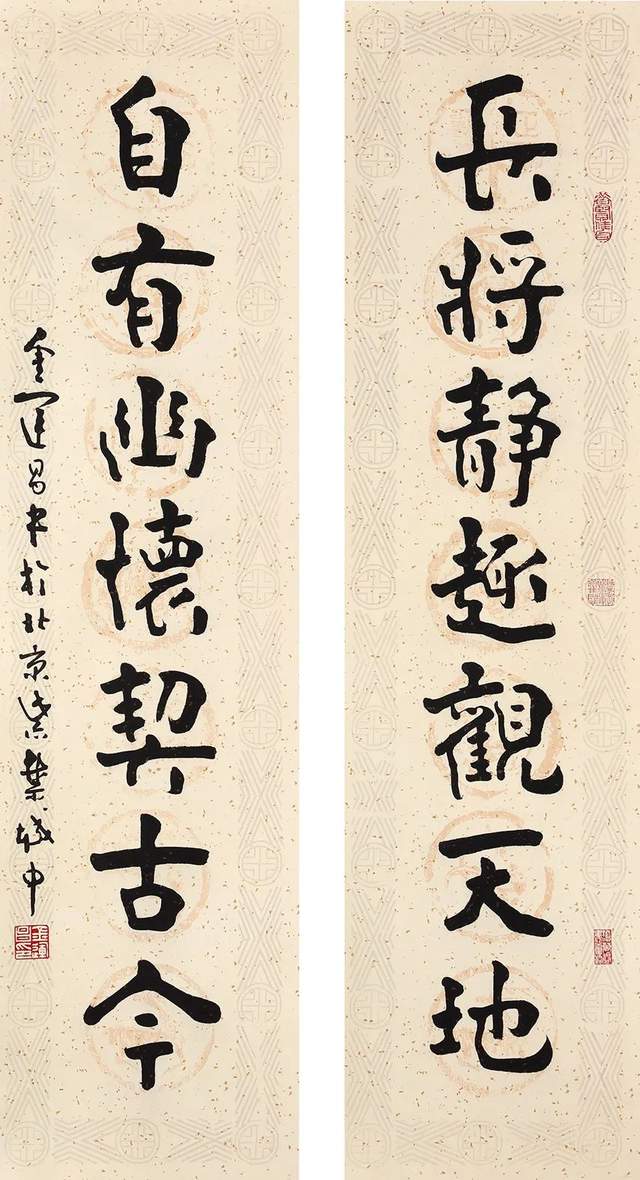 長将静趣觀天地
自有幽懷契古今
金運昌書於北京紫禁城中